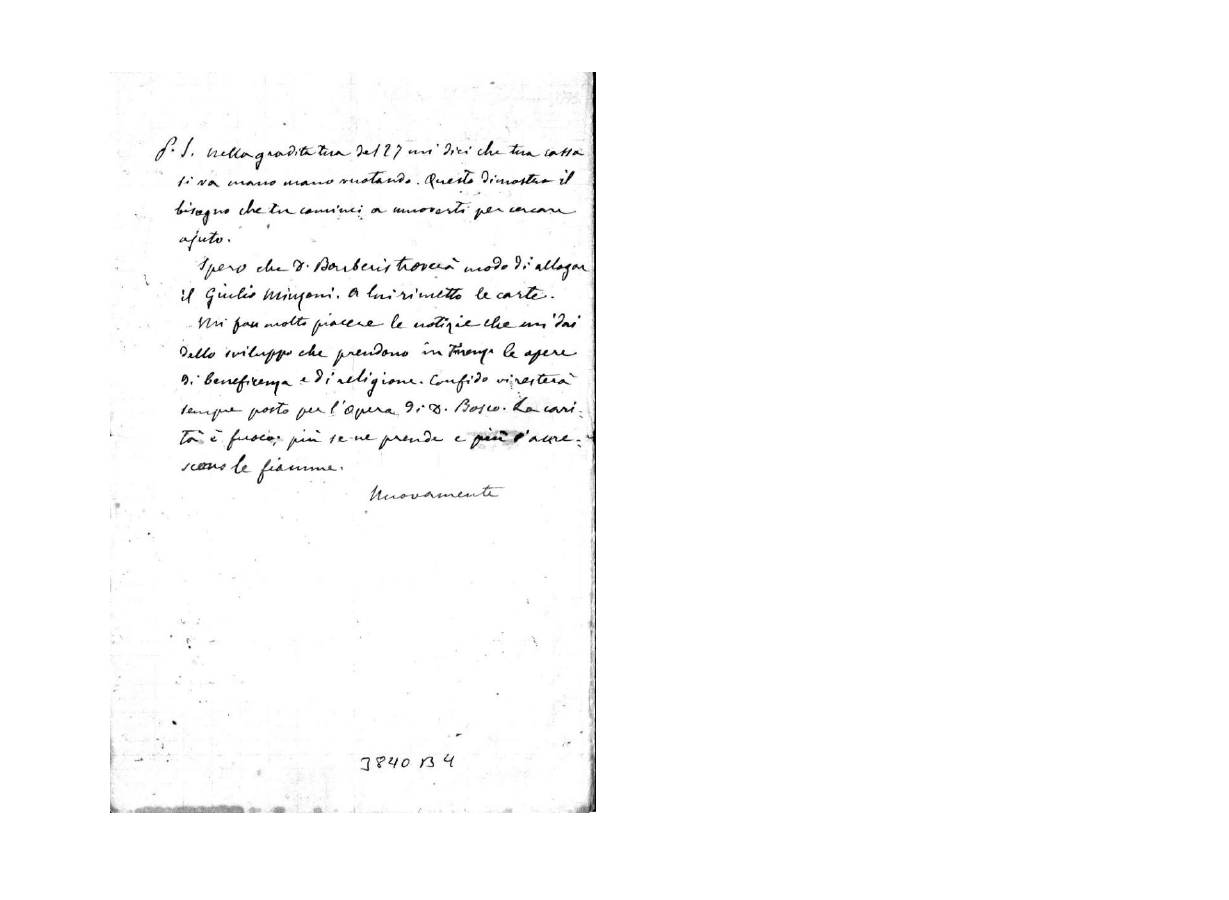 P.S. Nella gradita tua del 27 mi dici che tua cassa
si va mano mano vuotando. Questo dimostra il
bisogno che tu cominci a muoverti per cercare
ajuto.
Spero che D. Barberis troverà modo di allogar
il Giulio Minzoni. A lui rimetto le carte.
Mi fan molto piacere le notizie che mi dai
dello sviluppo che prendono in Firenze le opere
di beneficenza e di religione. Confido vi resterà
sempre posto per l'Opera di D. Bosco. La cari-
tà è fuoco; più se ne prende e più s'accre-
scono le fiamme.
Nuovamente
3840 B 4